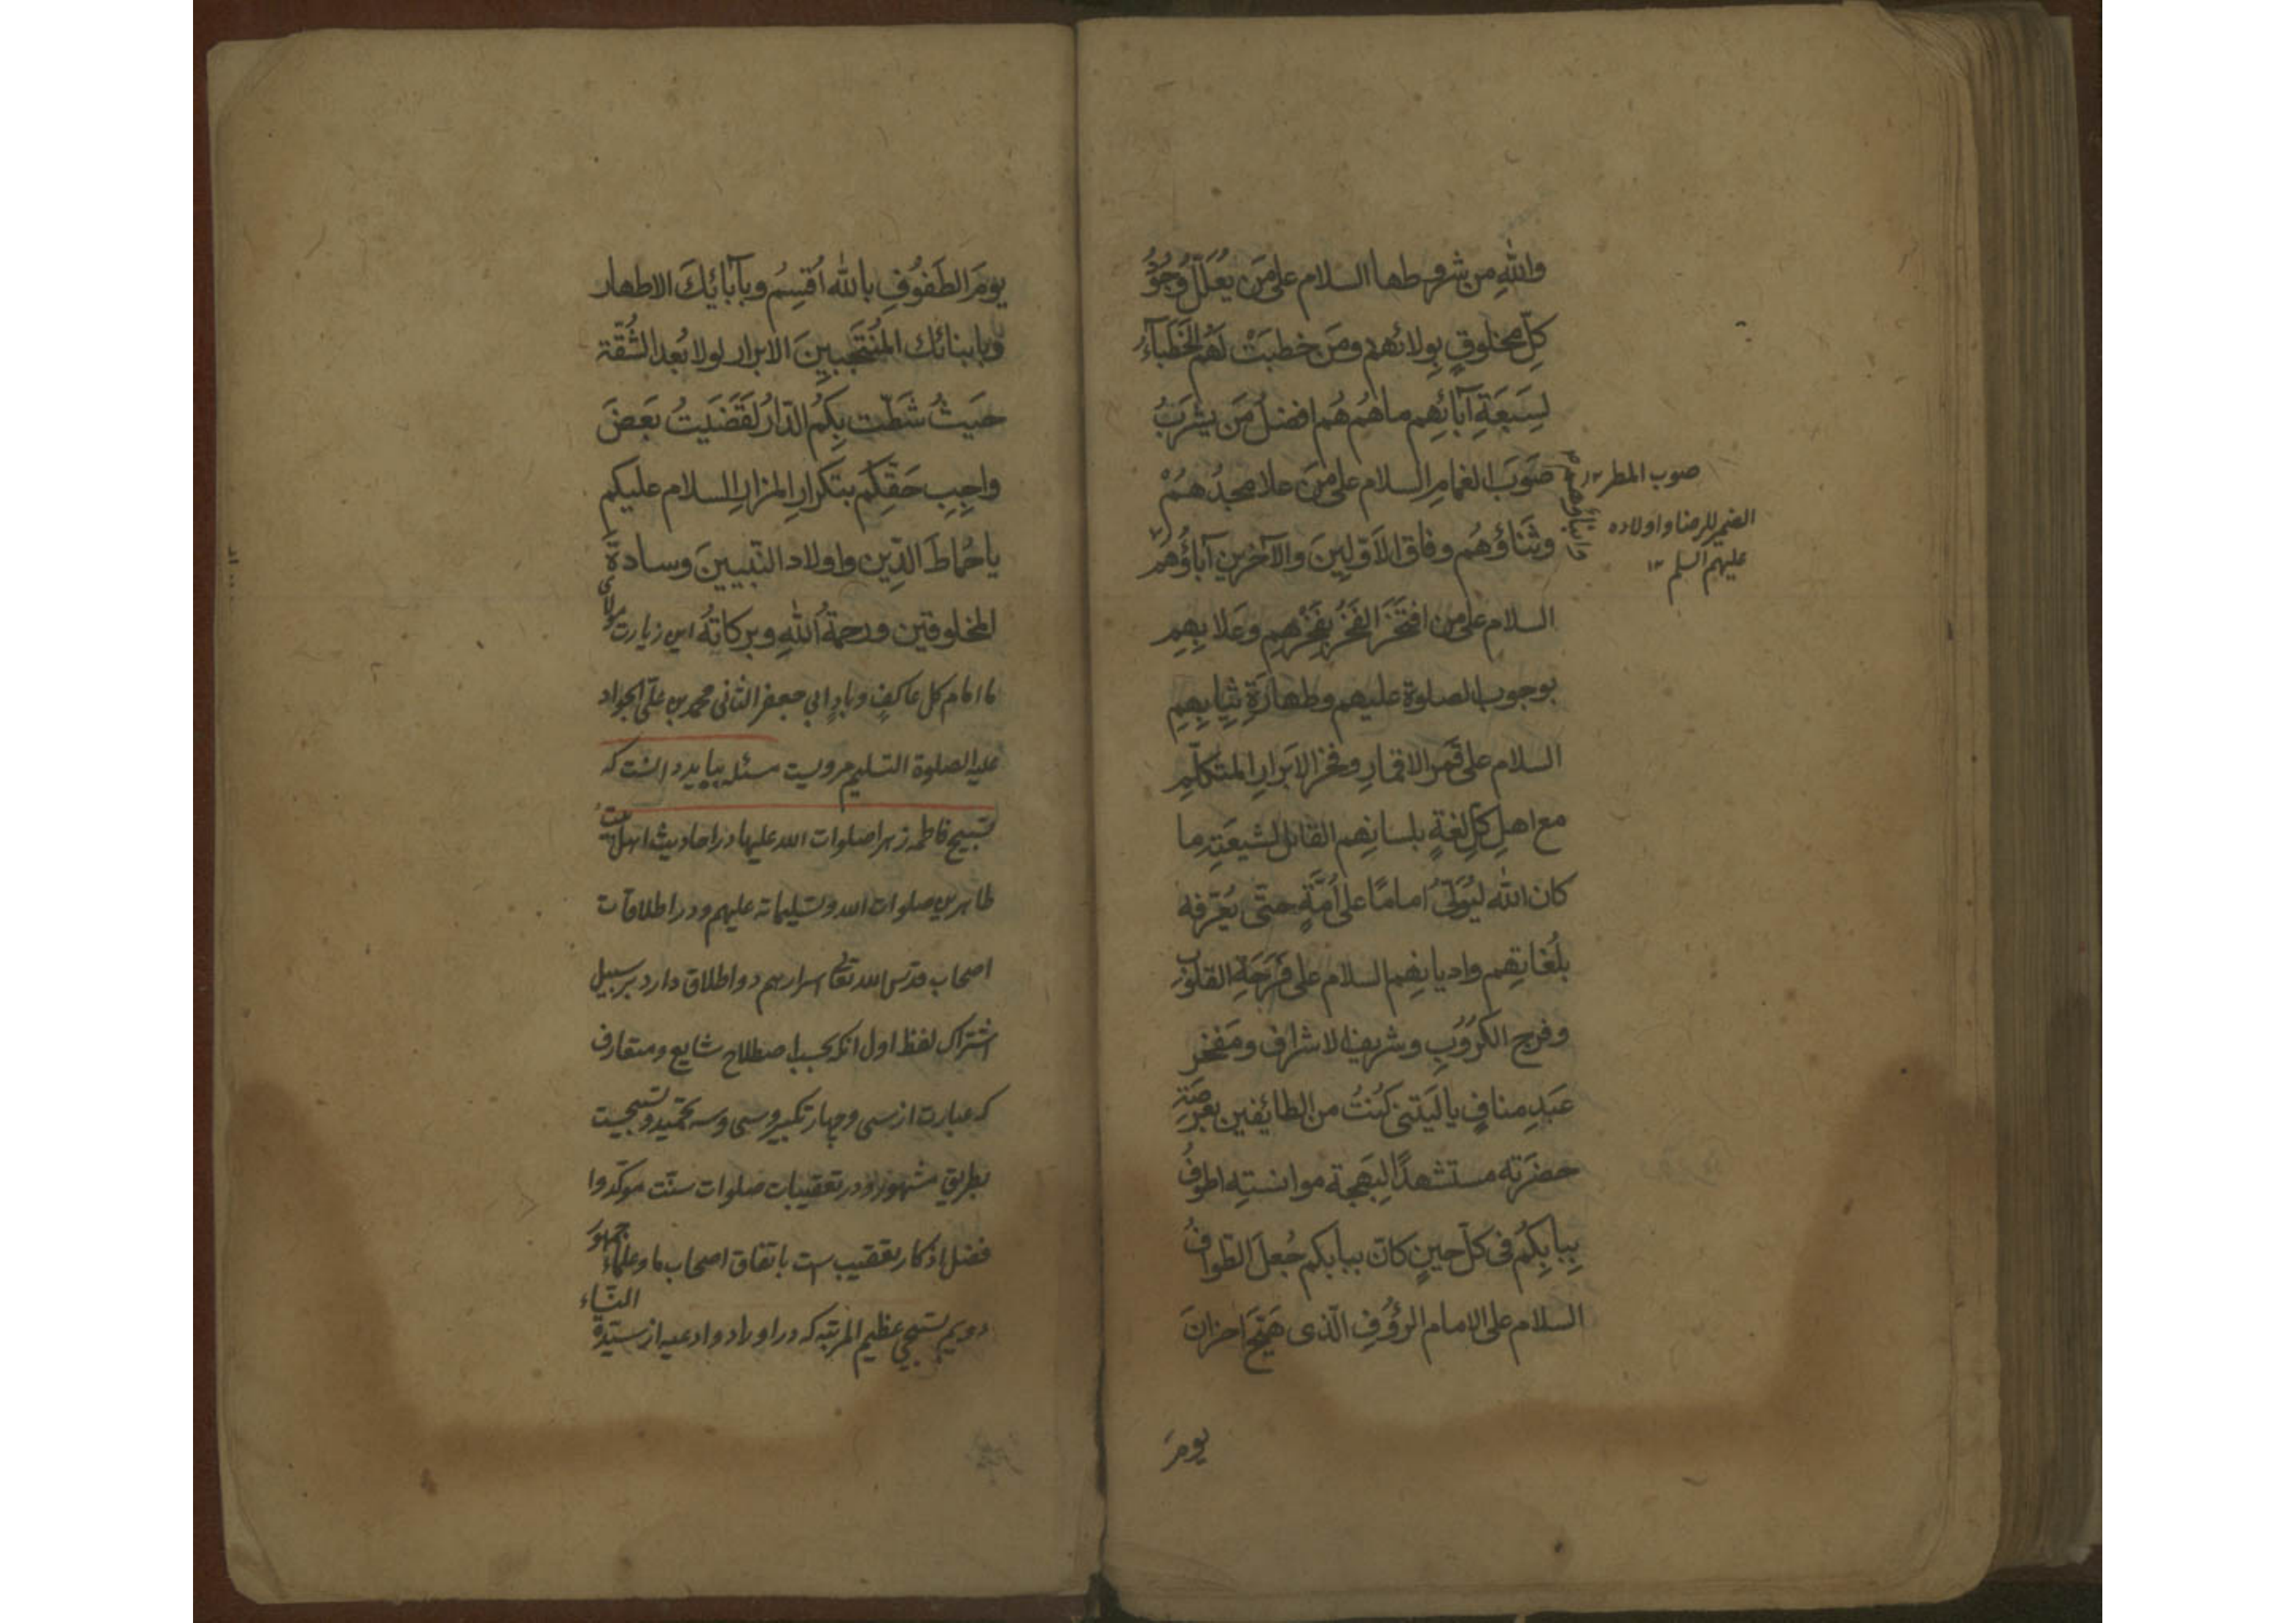 والله من شروطها السلام على من يُعَلّل وُجُوْدُ
كلِّ مخلوقٍ بِولائهم ومَن خطبَتْ لَهُم الخُطَبآءُ
لِسَبعَةِ آبائِهِم ماهُم هُم افضلُ مَن يشرَبُ
صَوبَ الغمامِ السلام على مَن علا مجدُهُمْ
صوب المطر ١٢
وابناؤهم
وثَناؤهُم وفاق الاَوّلِينَ والآخرين آباؤُهُم
الضمير للرضا واولاده
عليهم السلم ١٢
السلام على من افتَخَرَ الفَخرُ بِفَخْرِهِم وعَلا بِهِمِ
بوجوب الصلوة عليهم وطهارَةِ ثِيابِهِمِ
السلام على قَمَر الاقمارِ وفخر الابَرارِ المتكلّمِ
مع اهلِ كلِ لغةٍ بلسانِهِم القائل لشيعَتِه ما
كان الله ليُوَلّىَ امامًا على اُمَّةٍ حتى يُعَرّفه
بلُغاتِهِم واديانِهِم السلام على فَرَحَةِ القلوب
وفرج الكرُوبِ وشريف الاشراف ومَفخر
عَبدِ منافٍ يا لَيتَنى كُنتُ من الطايفين بعَرصَةِ
حضرَتِه مستشهدًا لِبَهجة موانستِه اطوفُ
بِبابِكُم فى كلّ حينٍ كانّ ببابكم جُعلَ الطوافُ
السلام على الامام الرؤُوفِ الّذى هَيَّجَ احزانَ
يومَ
يومَ الطَفُوفِ بالله اُقسِمُ وبآبائِكَ الاطهار
وبابنائك المُنتَجَبِينَ الابرار لولا بُعد الشُقّة
حَيثُ شَطّت بِكُم الدّارُ لَقَضَيتُ بَعضَ
واجِبِ حَقِّكُم بتكرارِ المزارِ السلام عليكم
ياحُماطَ الدّين واولاد النّبيينَ وسادةَ
المخلوقين ورحمةُ اللهِ وبركاتهُ اين زيارت مولاى
ما امام كل عاكفٍ وبادٍ ابى جعفر الثانى محمد بن علىّ الجواد
عليه الصلوة التسليم مرويست مسئله ببايد دانست كه
تسبيح فاطمه زهرا صلوات الله عليها در احاديث اهل بيت
طاهرين صلوات الله وتسليماته عليهم ودر اطلاقات
اصحاب قدّس الله تعالى اسرارهم دو اطلاق دارد بر سبيل
اشتراك لفظ اول انكه بحسب اصطلاح شايع ومتعارف
كه عبارت از سى وچهار تكبير وسى وسه تحميد وتسبيحيست
بطريق مشهور ودر تعقيبات صلوات سنّت موكّد وا
فضل اذكار تعقيب ست باتفاق اصحاب ما وعلماء جمهور
دويم تسبيحى عظيم المرتبه كه در اوراد وادعيه از سيّدة النساء